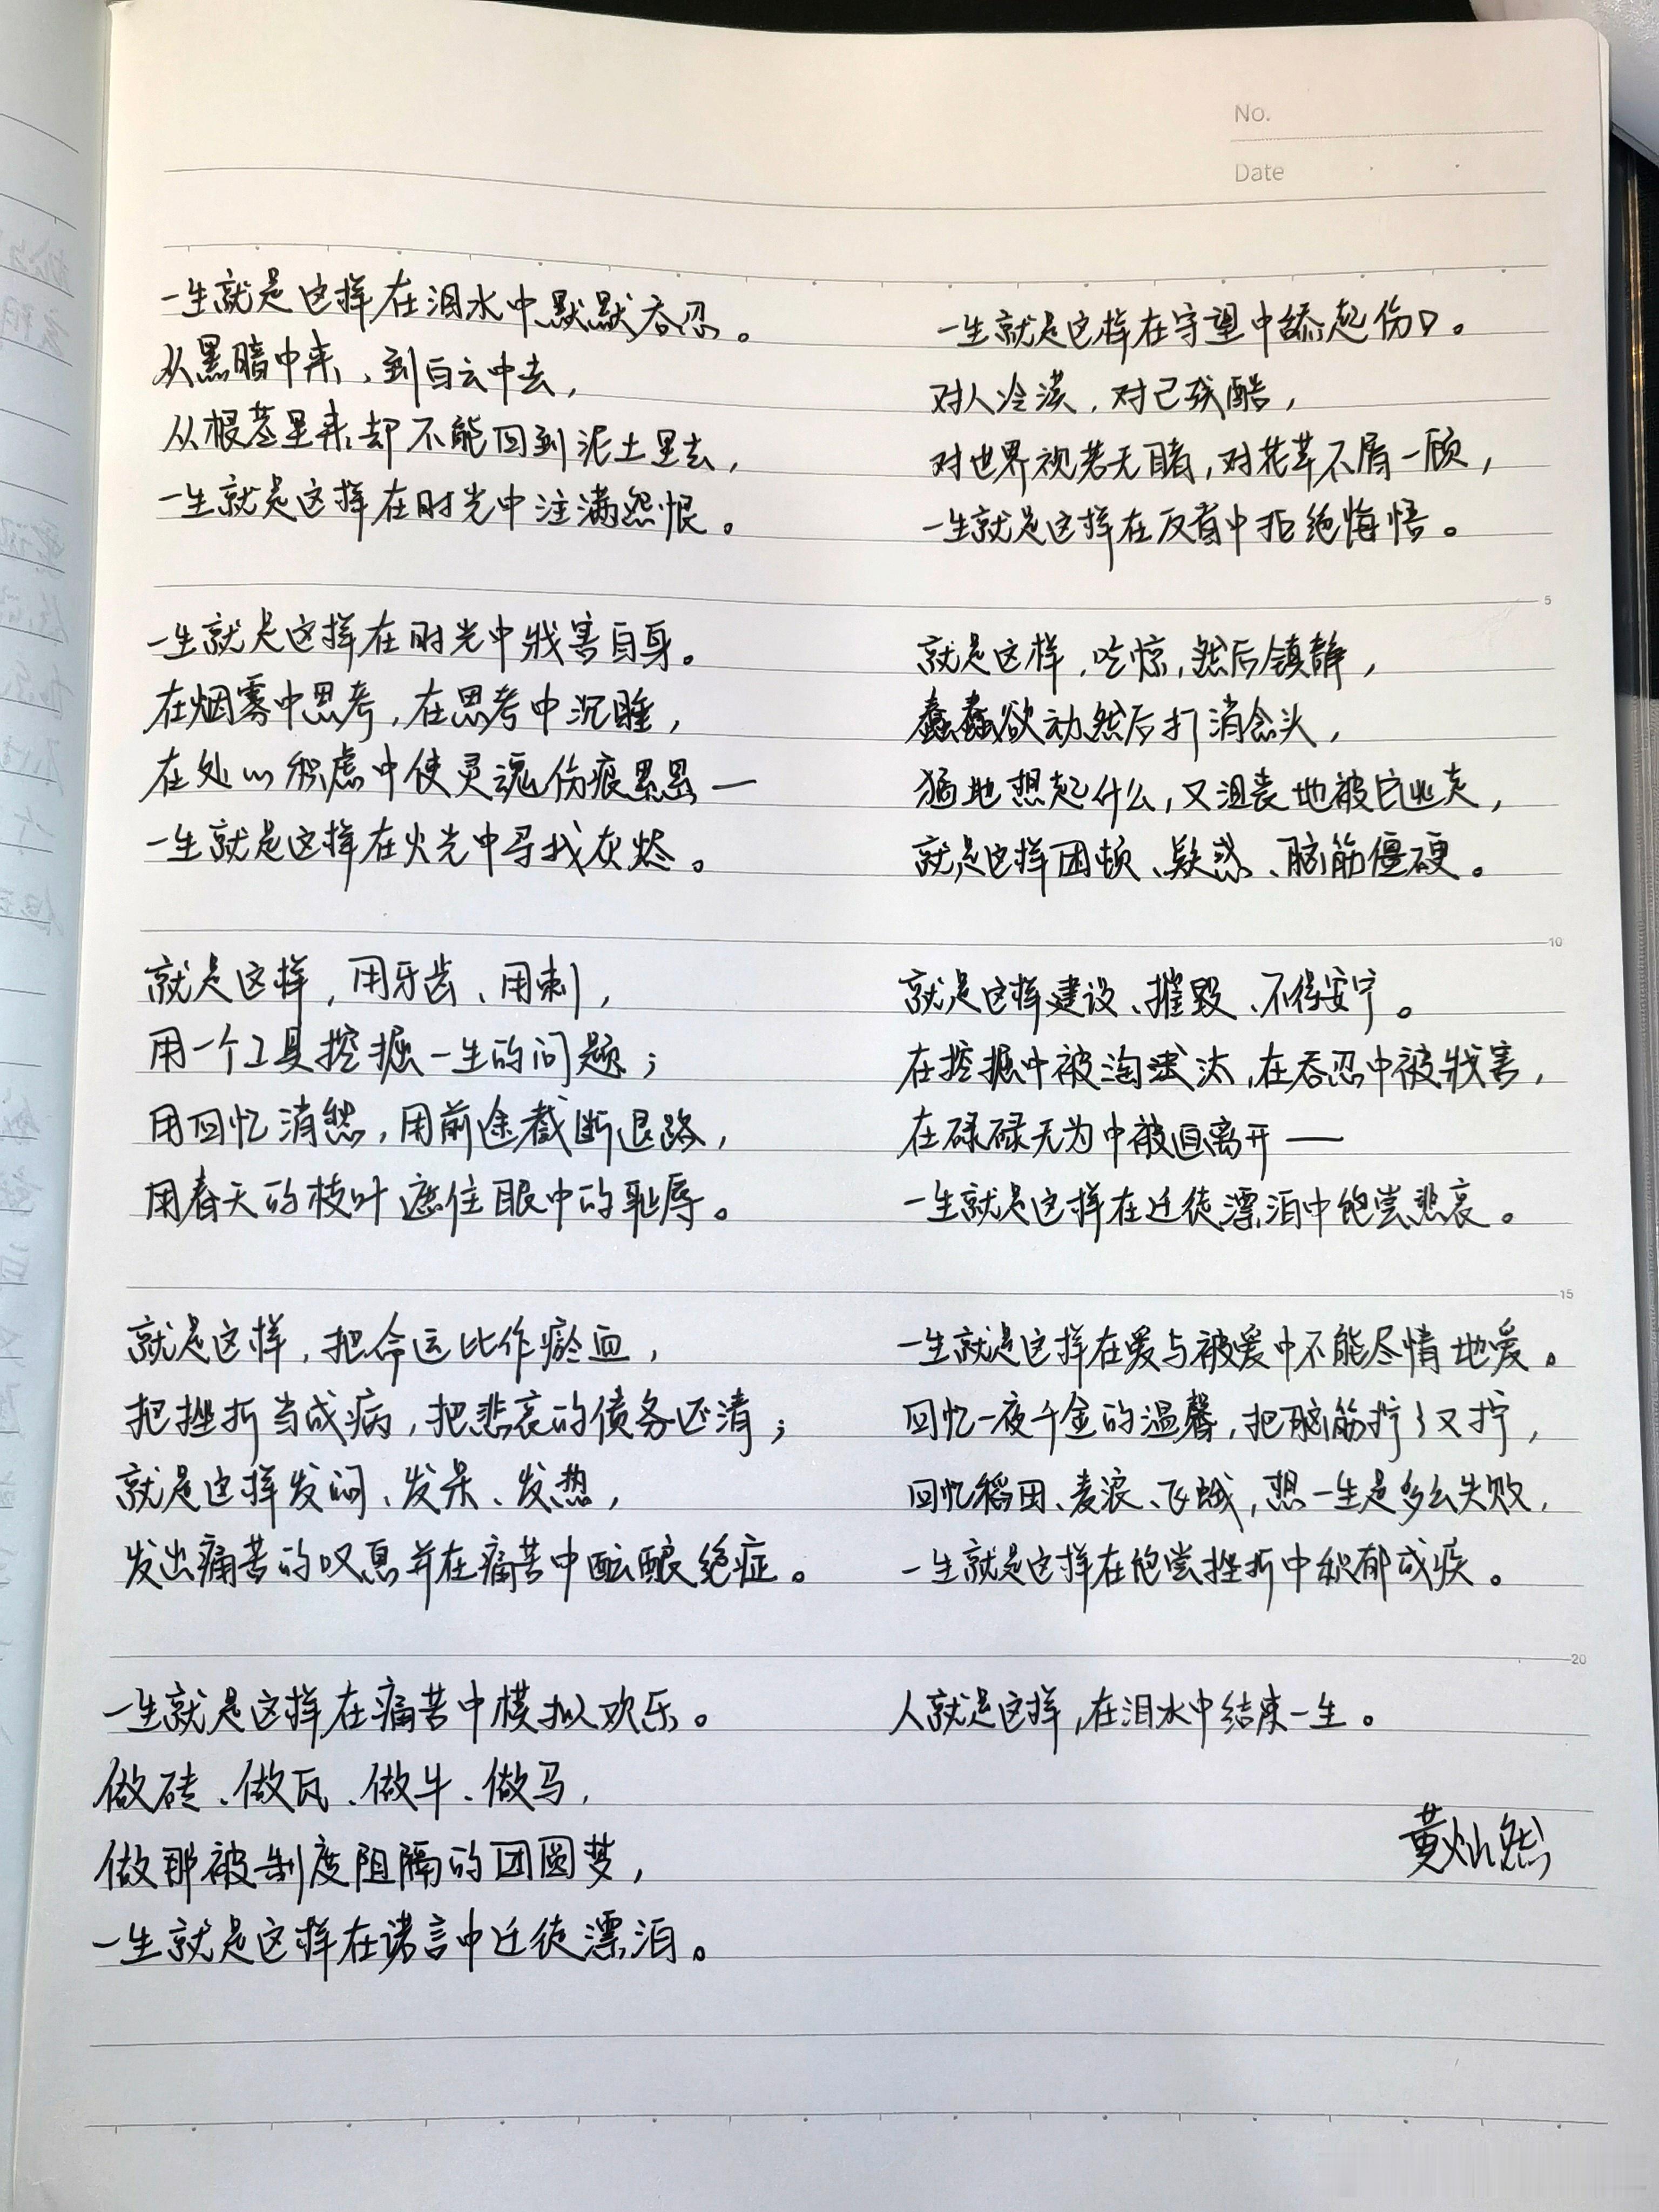 No.
Date
一生就是这样在泪水中默默吞忍。
从黑暗中来，到白云中去，
从根茎里来却不能回到泥土里去，
一生就是这样在时光中注满怨恨。
一生就是这样在时光中戕害自身。
在烟雾中思考，在思考中沉睡，
在处心积虑中使灵魂伤痕累累—
一生就是这样在火光中寻找灰烬。
就是这样，用牙齿、用刺，
用一个工具挖掘一生的问题；
用回忆消愁，用前途截断退路，
用春天的枝叶遮住眼中的耻辱。
就是这样，把命运比作瘀血，
把挫折当成病，把悲哀的债务还清；
就是这样发闷、发呆、发热，
发出痛苦的叹息并在痛苦中酝酿绝症。
一生就是这样在痛苦中模拟欢乐。
做砖、做瓦、做牛、做马，
做那被制度阻隔的团圆梦，
一生就是这样在诺言中迁徙漂泊。
一生就是这样在守望中舔起伤口。
对人冷漠，对己残酷，
对世界视若无睹，对花草不屑一顾，
一生就是这样在反省中拒绝悔悟。
5
就是这样，吃惊，然后镇静，
蠢蠢欲动然后打消念头，
猛地想起什么，又沮丧地被它逃走，
就是这样困顿、疑惑、脑筋僵硬。
10
就是这样建设、摧毁、不得安宁。
在挖掘中被淘汰，在吞忍中被戕害，
在碌碌无为中被迫离开——
一生就是这样在迁徙漂泊中饱尝悲哀。
15
一生就是这样在爱与被爱中不能尽情地爱。
回忆一夜千金的温馨，把脑筋拧了又拧，
回忆稻田、麦浪、飞蛾，想一生是多么失败，
一生就是这样在饱尝挫折中积郁成疾。
20
人就是这样，在泪水中结束一生。
黄灿然